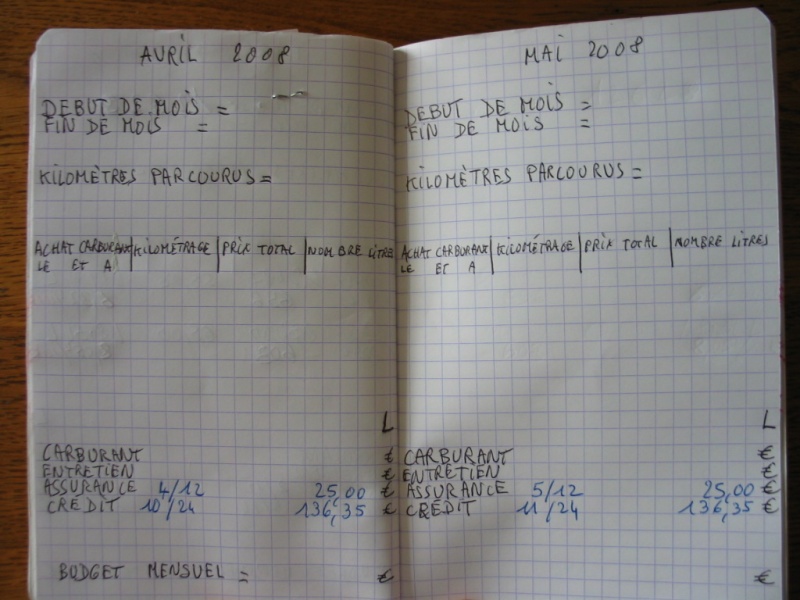 AVRIL 2008
DEBUT DE MOIS =
FIN DE MOIS =
KILOMÈTRES PARCOURUS =
ACHAT CARBURANT | KILOMÉTRAGE | PRIX TOTAL | NOMBRE LITRE
LE ET A
L
CARBURANT €
ENTRETIEN €
ASSURANCE 4/12 25,00 €
CREDIT 10/24 136,35 €
BUDGET MENSUEL = €
MAI 2008
DEBUT DE MOIS =
FIN DE MOIS =
KILOMÈTRES PARCOURUS =
ACHAT CARBURANT | KILOMÉTRAGE | PRIX TOTAL | NOMBRE LITRES
LE ET A
L
CARBURANT €
ENTRETIEN €
ASSURANCE 5/12 25,00 €
CREDIT 11/24 136,35 €
€